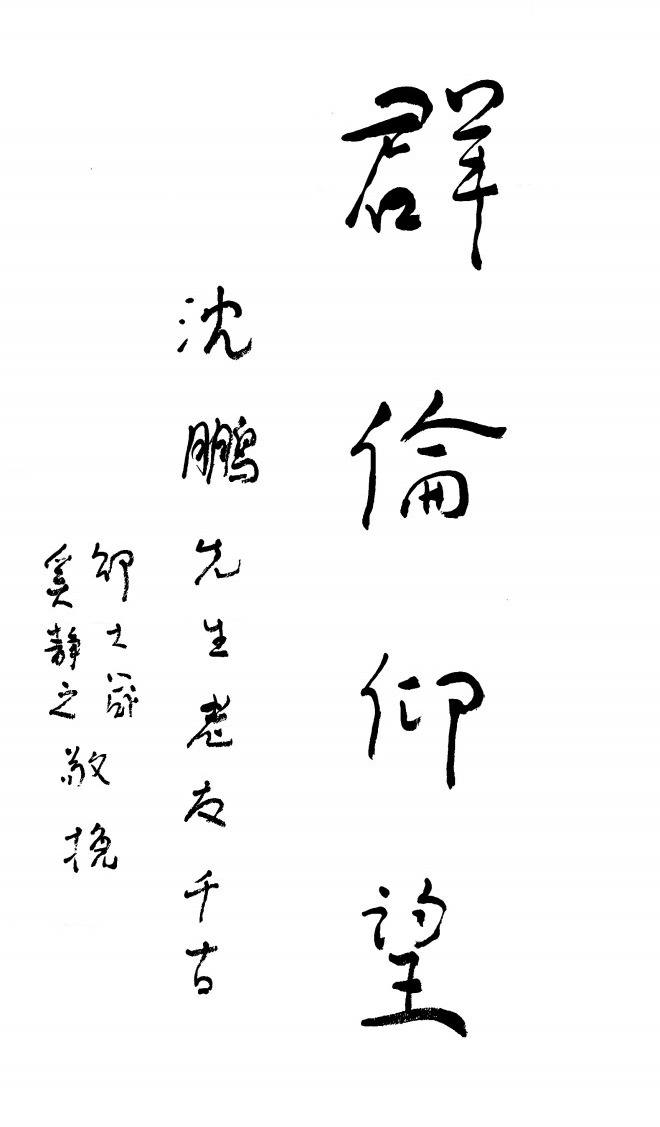 群倫仰望
沈鵬先生老友千古
邵大箴
奚靜之
敬挽